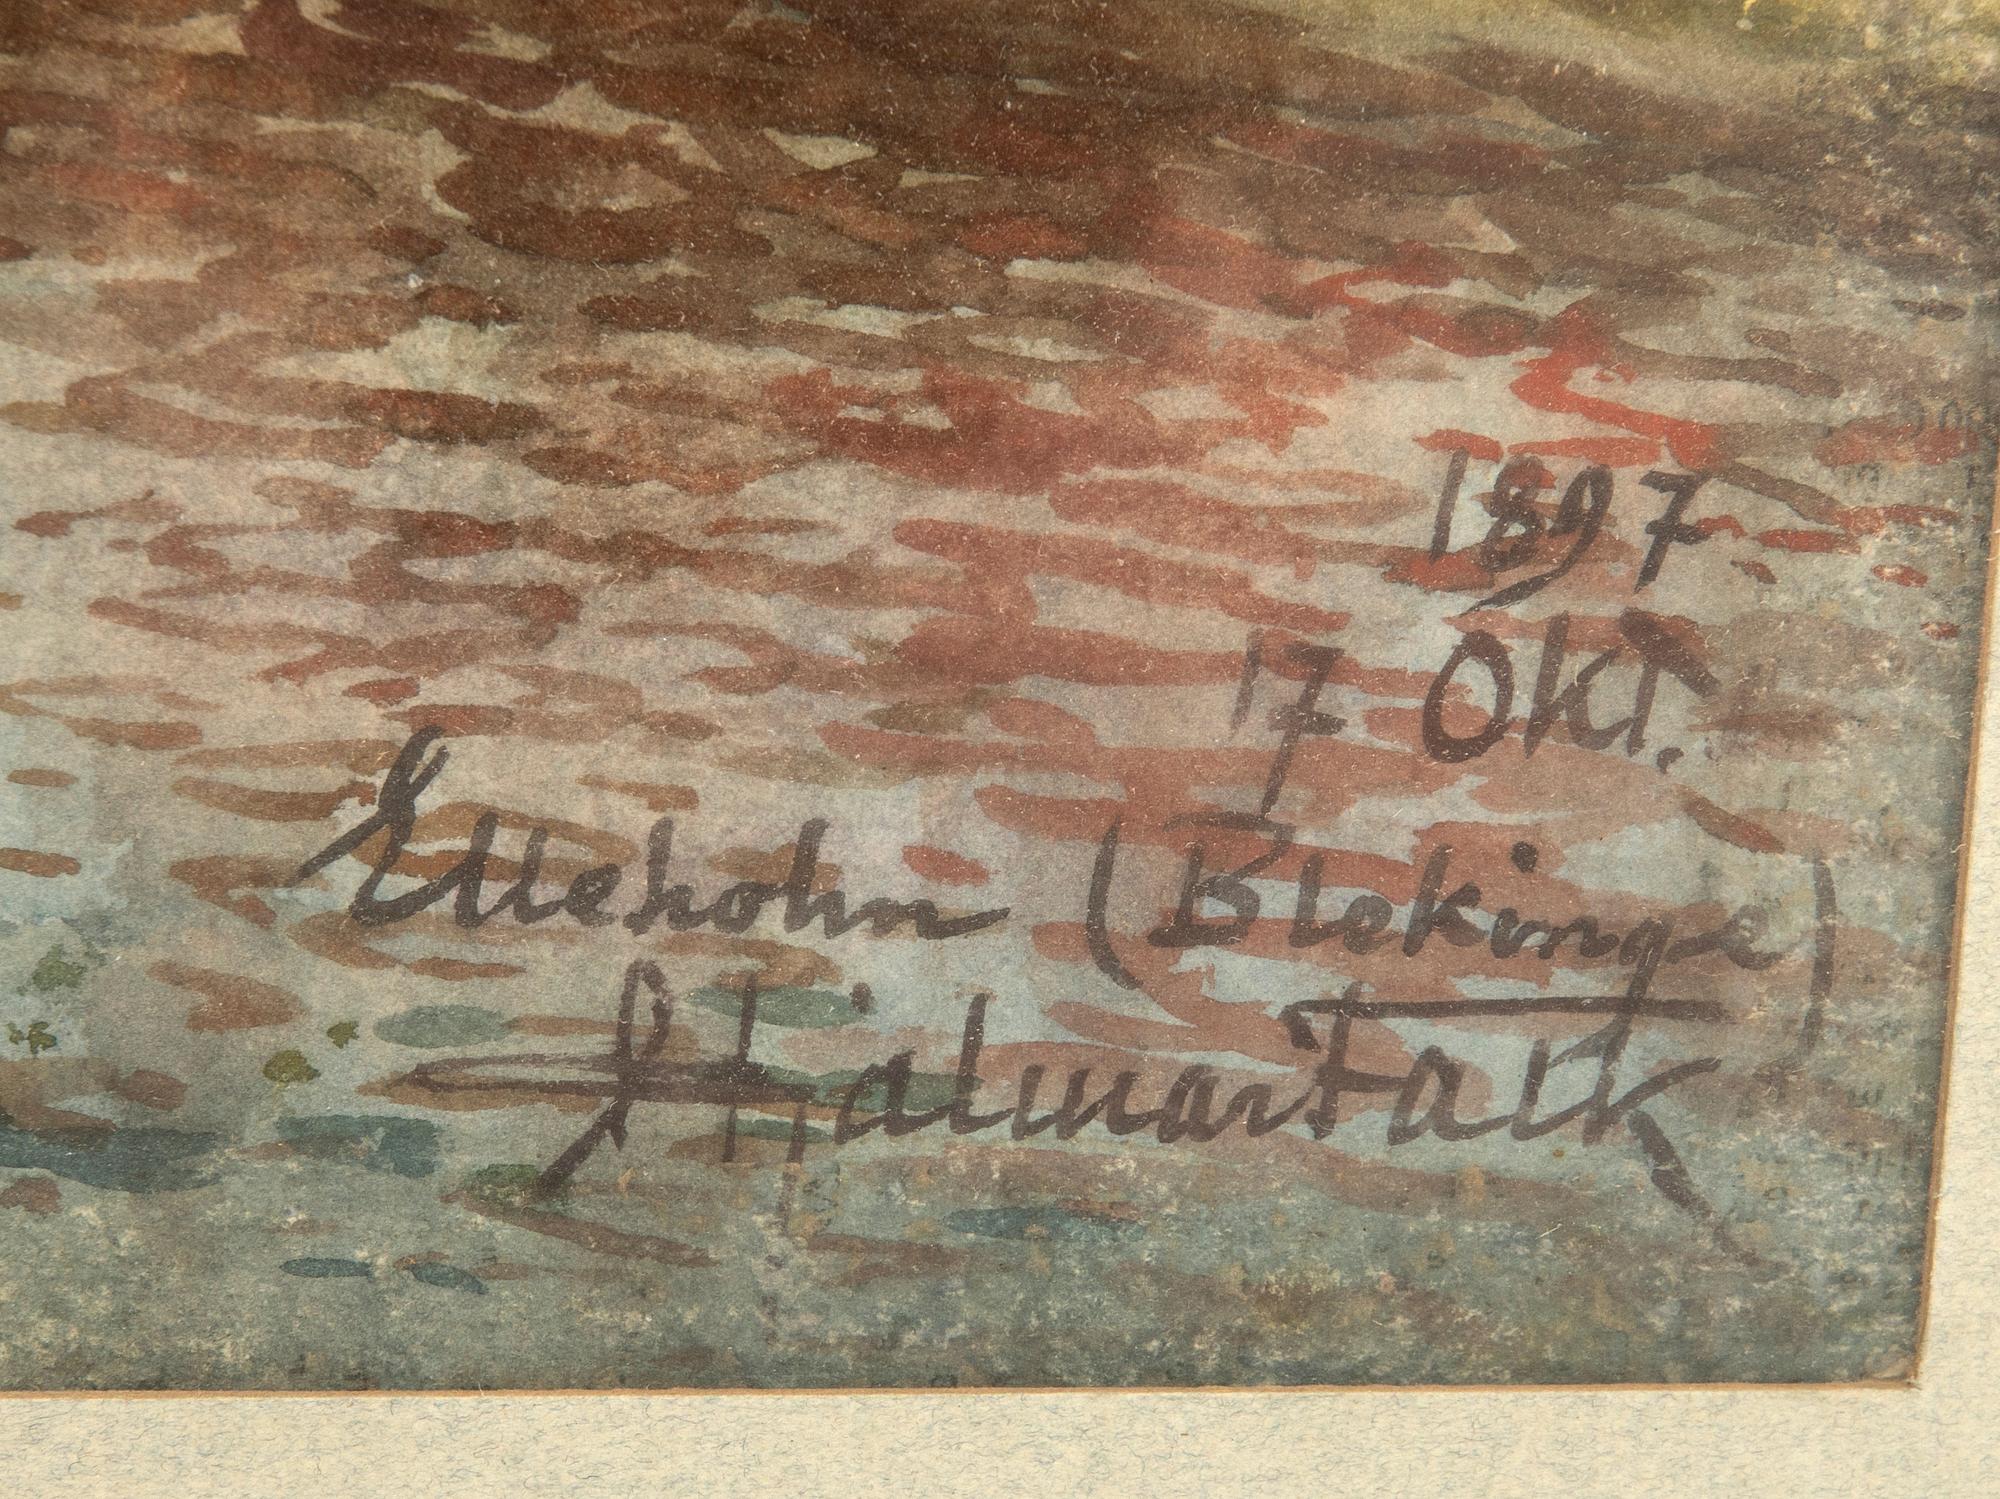 1897
17 Okt.
Elleholm (Blekinge)
Hjalmar Falk